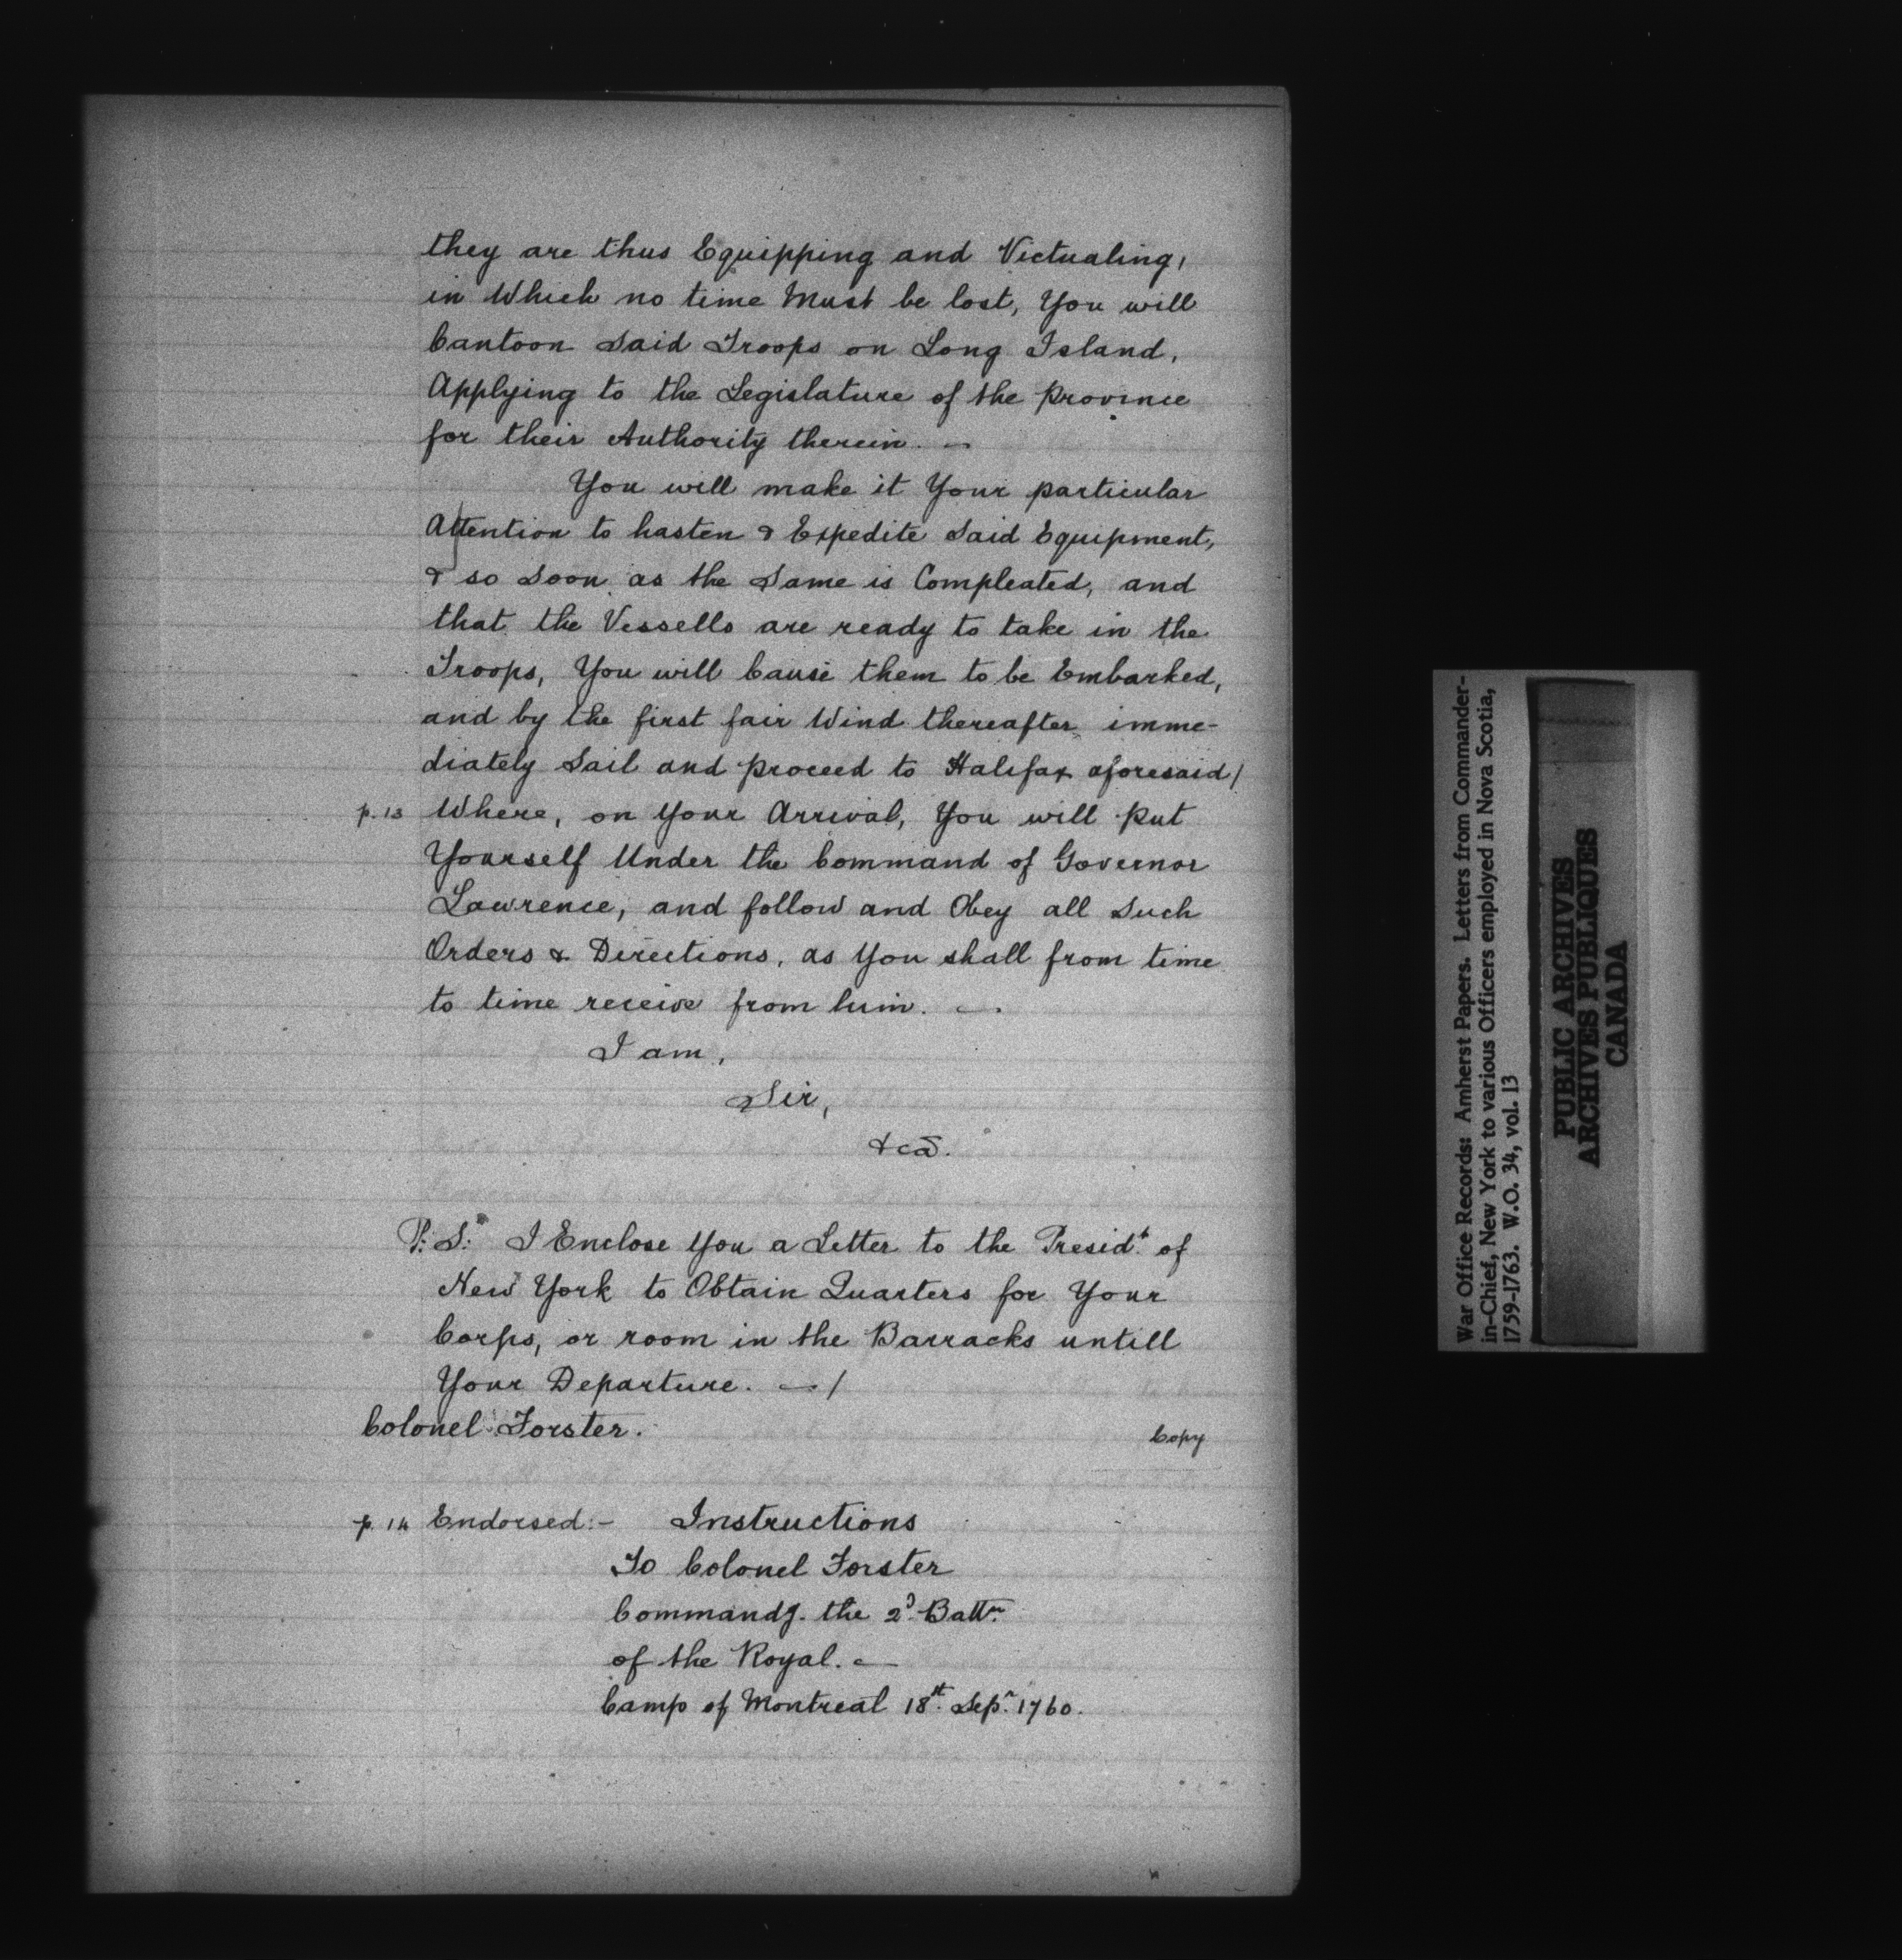 they are thus Equipping and Victualing,
in Which no time Must be lost, You will
Cantoon Said Troops on Long Island,
Applying to the Legislature of the province
for their Authority therein. —
You will make it Your particular
Attention to hasten & Expedite Said Equipment,
& so Soon as the Same is Compleated, and
that the Vessells are ready to take in the
Troops, You will Cause them to be Embarked,
and by the first fair Wind thereafter imme-
diately Sail and proceed to Halifax aforesaid/
p. 13 Where, on Your Arrival, You will put
Yourself Under the Command of Governor
Lawrence, and follow and Obey all Such
Orders & Directions, as You shall from time
to time receive from him. —.
I am,
Sir,
&ca.
P: S: I Enclose You a Letter to the Presidt. of
New York to Obtain Quarters for Your
Corps, or room in the Barracks untill
Your Departure. —./
Colonel Forster.
Copy
p. 14 Endorsed:- Instructions
To Colonel Forster
Commandg. the 2d. Battn.
of the Royal. —
Camp of Montreal 18th. Sepr. 1760.
War Office Records: Amherst Papers. Letters from Commander-
in-Chief, New York to various Officers employed in Nova Scotia,
1759-1763. W.O. 34, vol. 13
PUBLIC ARCHIVES
ARCHIVES PUBLIQUES
CANADA